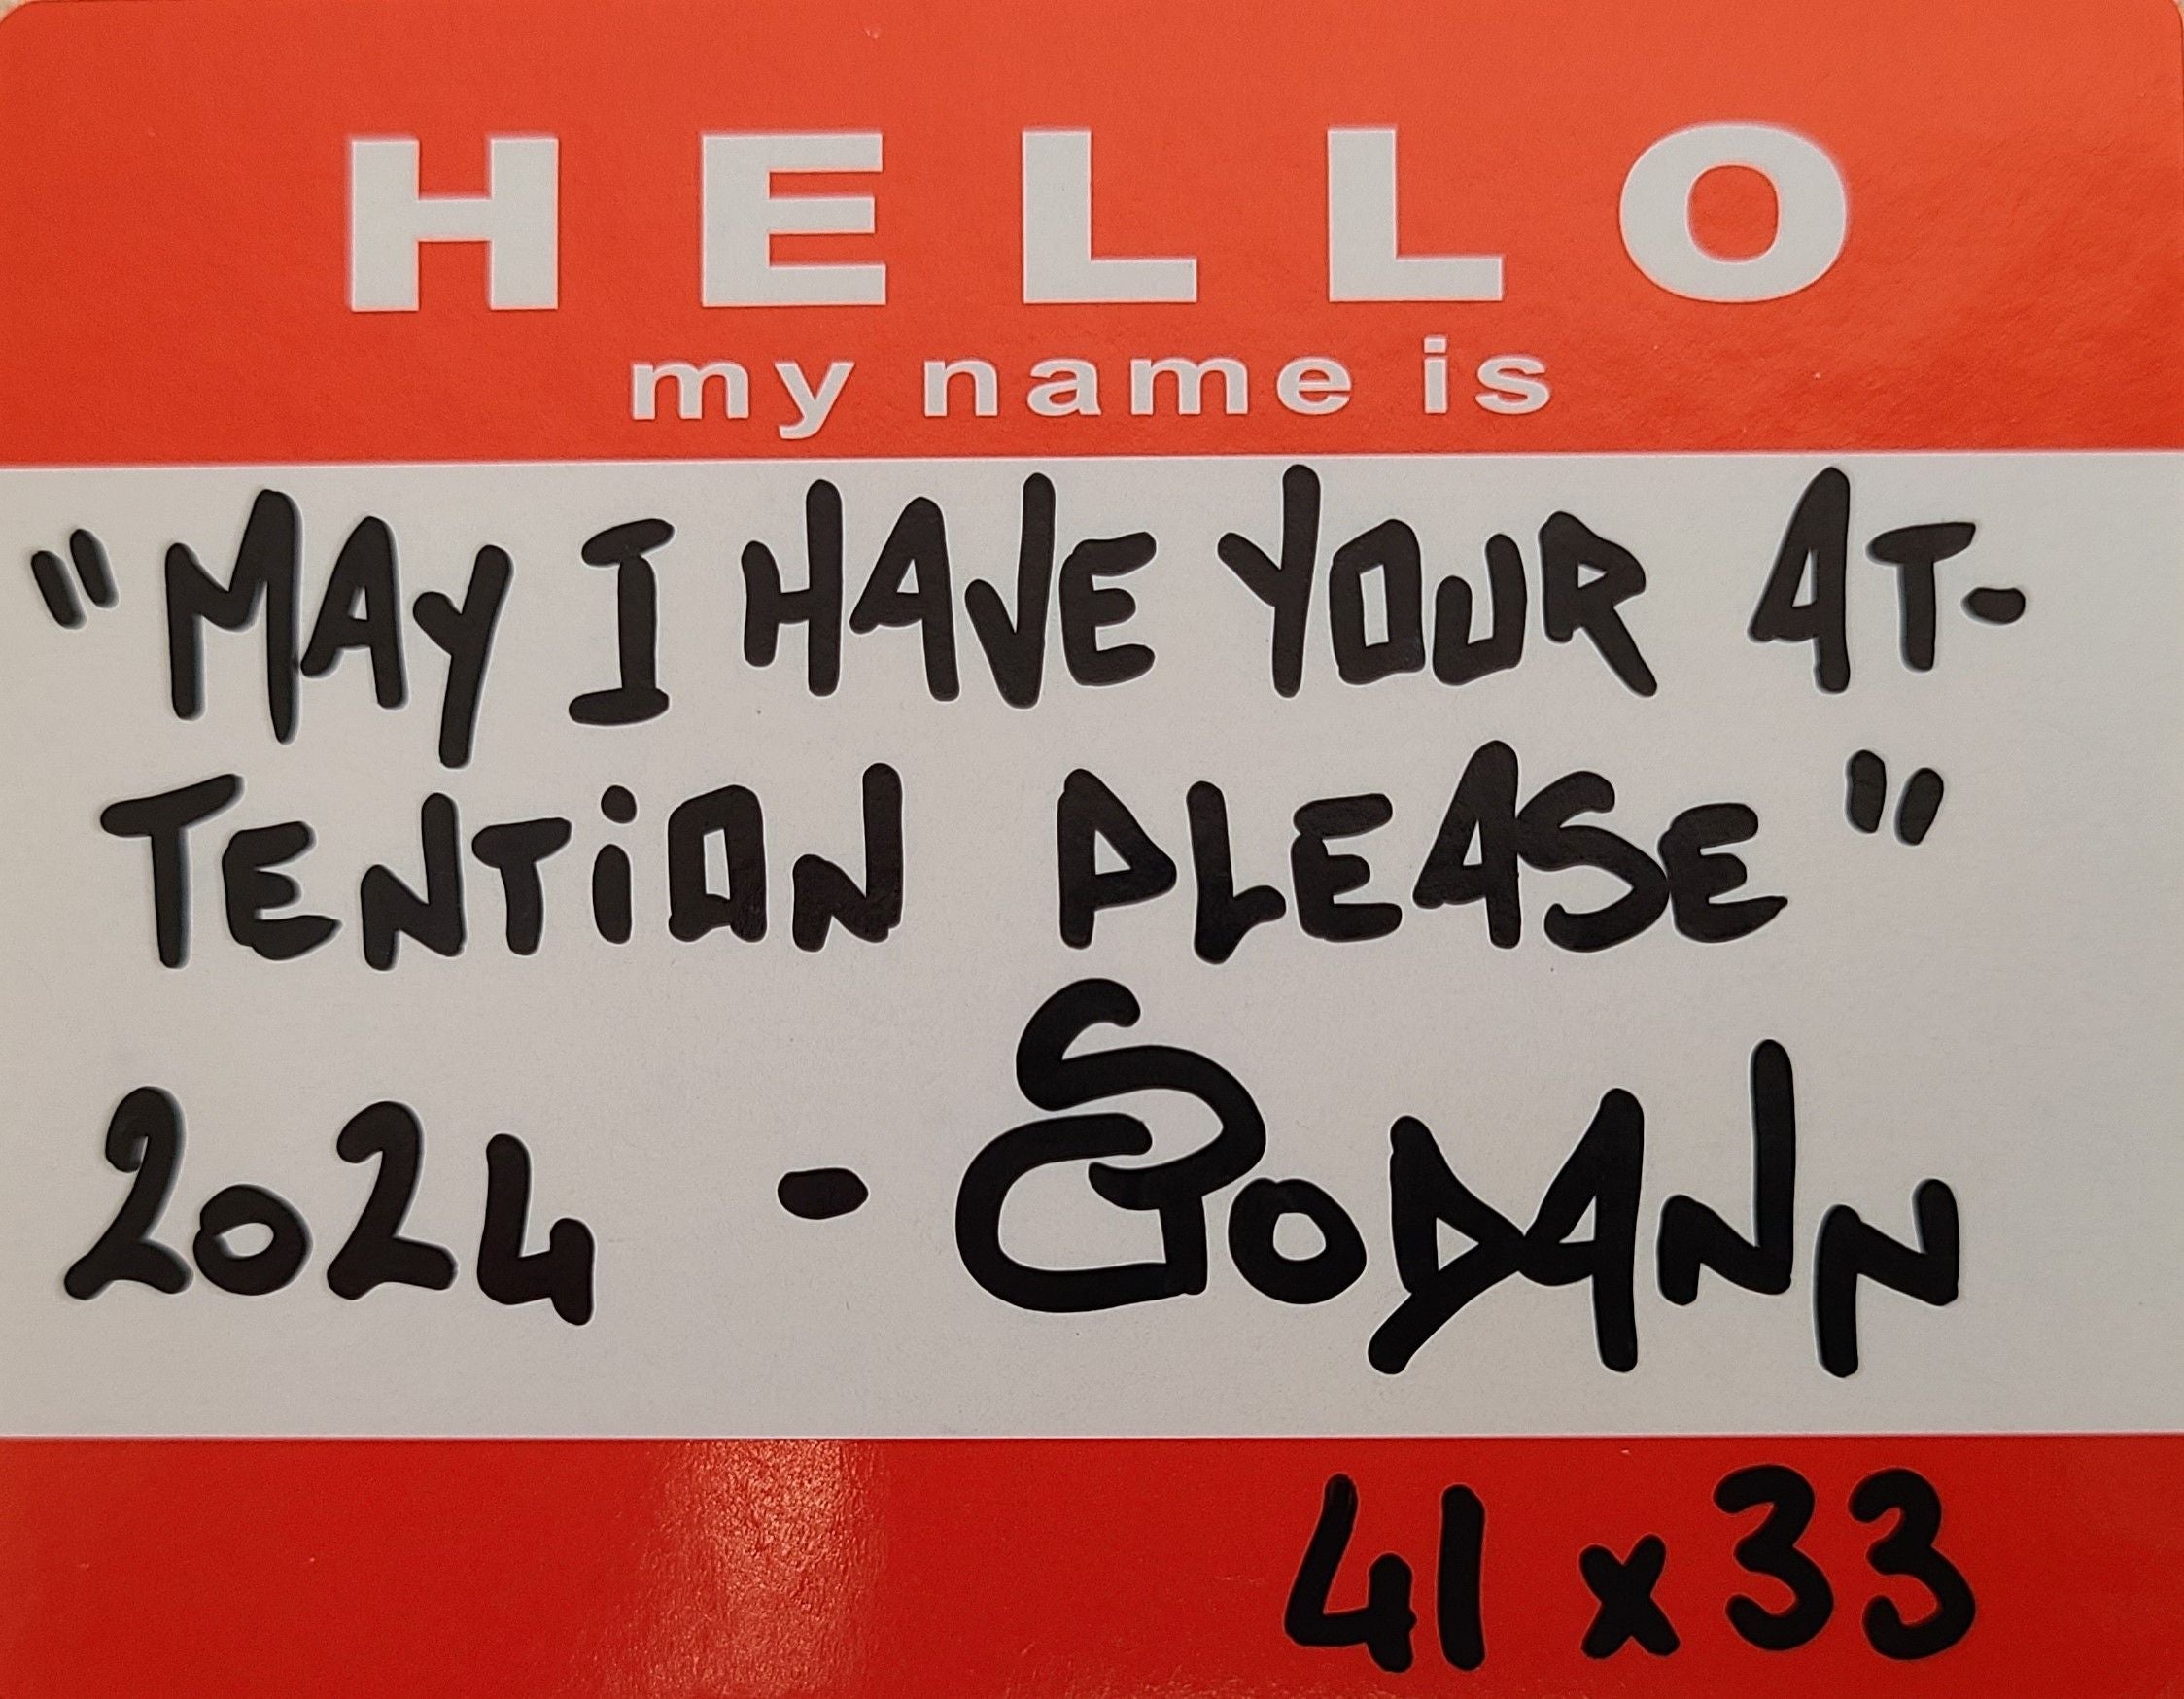 HELLO
my name is
"MAY I HAVE YOUR AT-
TENTiON PLEASE"
2024 - GODANN
41 x 33